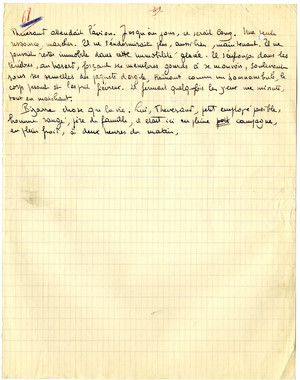 attendait l'avion. Jusqu'au jour, ce serait long. Une seule
ressource, marcher. Il ne s'endormirait pas, aussi bien, maintenant. Il ne
pouvait rester immobile dans cette immobilité glacée. Il s'enfonça dans les
ténèbres, au hasard, forçant ses membres gourds à se mouvoir, soulevant
sous ses semelles des paquets d'argile, titubant comme un somnambule, le
corps pesant et l'esprit fiévreux. Il fermait quelquefois les yeux une minute,
tout en marchant.
Bizarre chose que la vie. Lui, petit employé paisible,
homme rangé, père de famille, il était ici en pleine campagne,
en plein froid, à deux heures du matin,